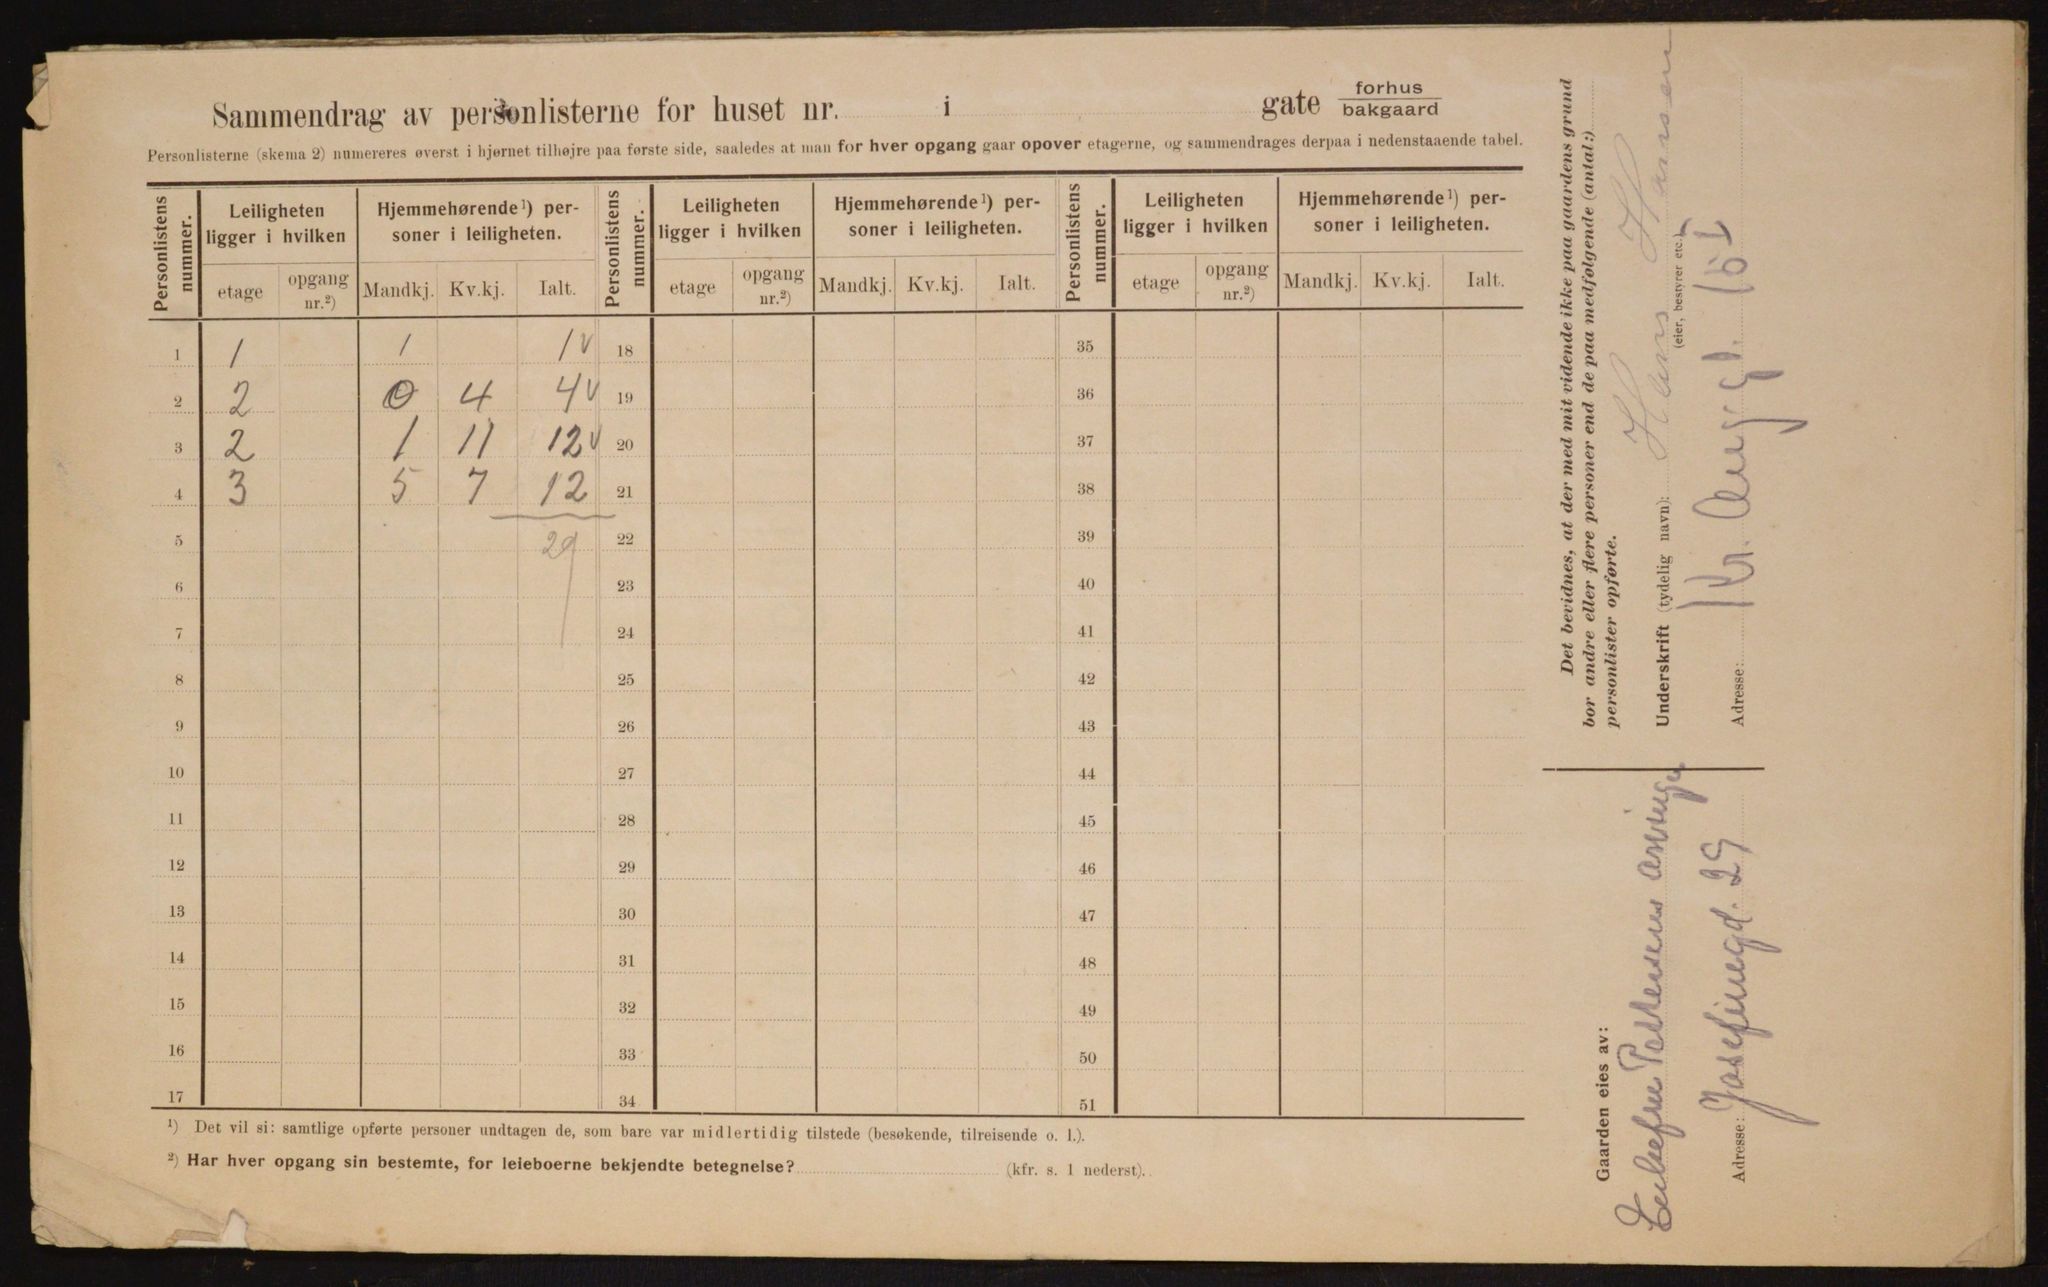 Sammendrag av personlisterne for huset nr. i gate forhus bakgaard
Personlisterne (skema 2) numereres øverst i hjørnet tilhøjre paa første side, saaledes at man for hver opgang gaar opover etagerne, og sammendrages derpaa i nedenstaaende tabel.
Personlistens nummer. Leiligheten ligger i hvilken Hjemmehørende ¹) personer i leiligheten. Personlistens nummer. Leiligheten ligger i hvilken Hjemmehørende ¹) personer i leiligheten. Personlistens nummer. Leiligheten ligger i hvilken Hjemmehørende ¹) personer i leiligheten.
etage opgang nr.²) Mandkj. Kv.kj. Ialt. etage opgang nr.²) Mandkj. Kv.kj. Ialt. etage opgang nr.²) Mandkj. Kv.kj. Ialt.
1 1 1 1 v 18 35
2 2 0 4 4 v 19 36
3 2 1 11 12 v 20 37
4 3 5 7 12 21 38
5 29 22 39
6 23 40
7 24 41
8 25 42
9 26 43
10 27 44
11 28 45
12 29 46
13 30 47
14 31 48
15 32 49
16 33 50
17 34 51
¹) Det vil si: samtlige opførte personer undtagen de, som bare var midlertidig tilstede (besøkende, tilreisende o. l.).
²) Har hver opgang sin bestemte, for leieboerne bekjendte betegnelse? (kfr. s. 1 nederst).
Det bevidnes, at der med mit vidende ikke paa gaardens grund
bor andre eller flere personer end de paa medfølgende (antal:)
personlister opførte.
Underskrift (tydelig navn): Hans Hansen
(eier, bestyrer etc.)
Adresse: Kr. Aug gt.
Gaarden eies av:
Pettersens
Adresse: Josefinegd. 29